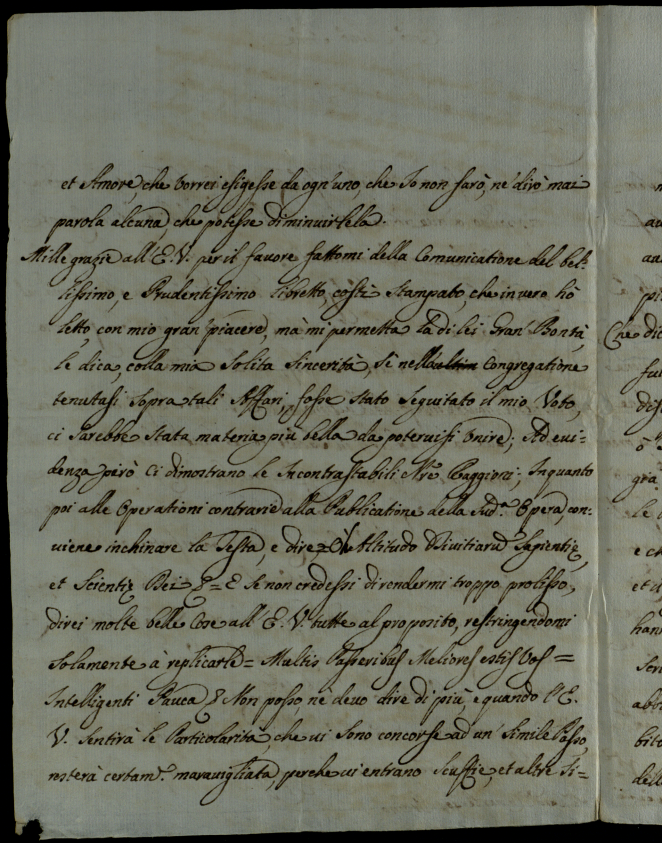 et Amore, che vorrei esigesse da ogn'uno, che Io non farò, ne' dirò mai
parola alcuna, che potesse diminuirtela.
Mille grazie all'E. V. per il favore fattomi della Comunicatione del bel-
lissimo, e Prudentissimo libretto, costì stampato, che in vero hò
letto, con mio gran piacere, mà mi permetta la di lei Gran Bontà,
le dica, colla mia solita sincerità, sè nell'ultim Congregatione
tenutasi sopra tali Affari, fosse stato seguitato il mio Voto,
ci sarebbe stata materia più bella da potervisi unire; Ad evi-
denza però ci dimostrano le Incontrastabili Nre Raggioni; Inquanto
poi alle Operationi contrarie alla Publicatione della Sud.a Opera, con-
viene inchinare la Testa, e dire, O Altitudo Divitiarũ Sapientię,
et Scientię Dei Se non credessi di rendermi troppo prolisso,
direi molte belle Cose all'E. V. tutte al proposito, restringendomi
solamente à replicarle = Multis Passeribus Meliores estis Vos =
Intelligenti Pauca Non posso, nè devo dire di più, e quando l'E.
V. sentirà le Particolarità, che vi sono concorse ad un' simile Passo,
resterà certam.e maravigliata, perche vi entrano Scuffie, et altre si=
Che